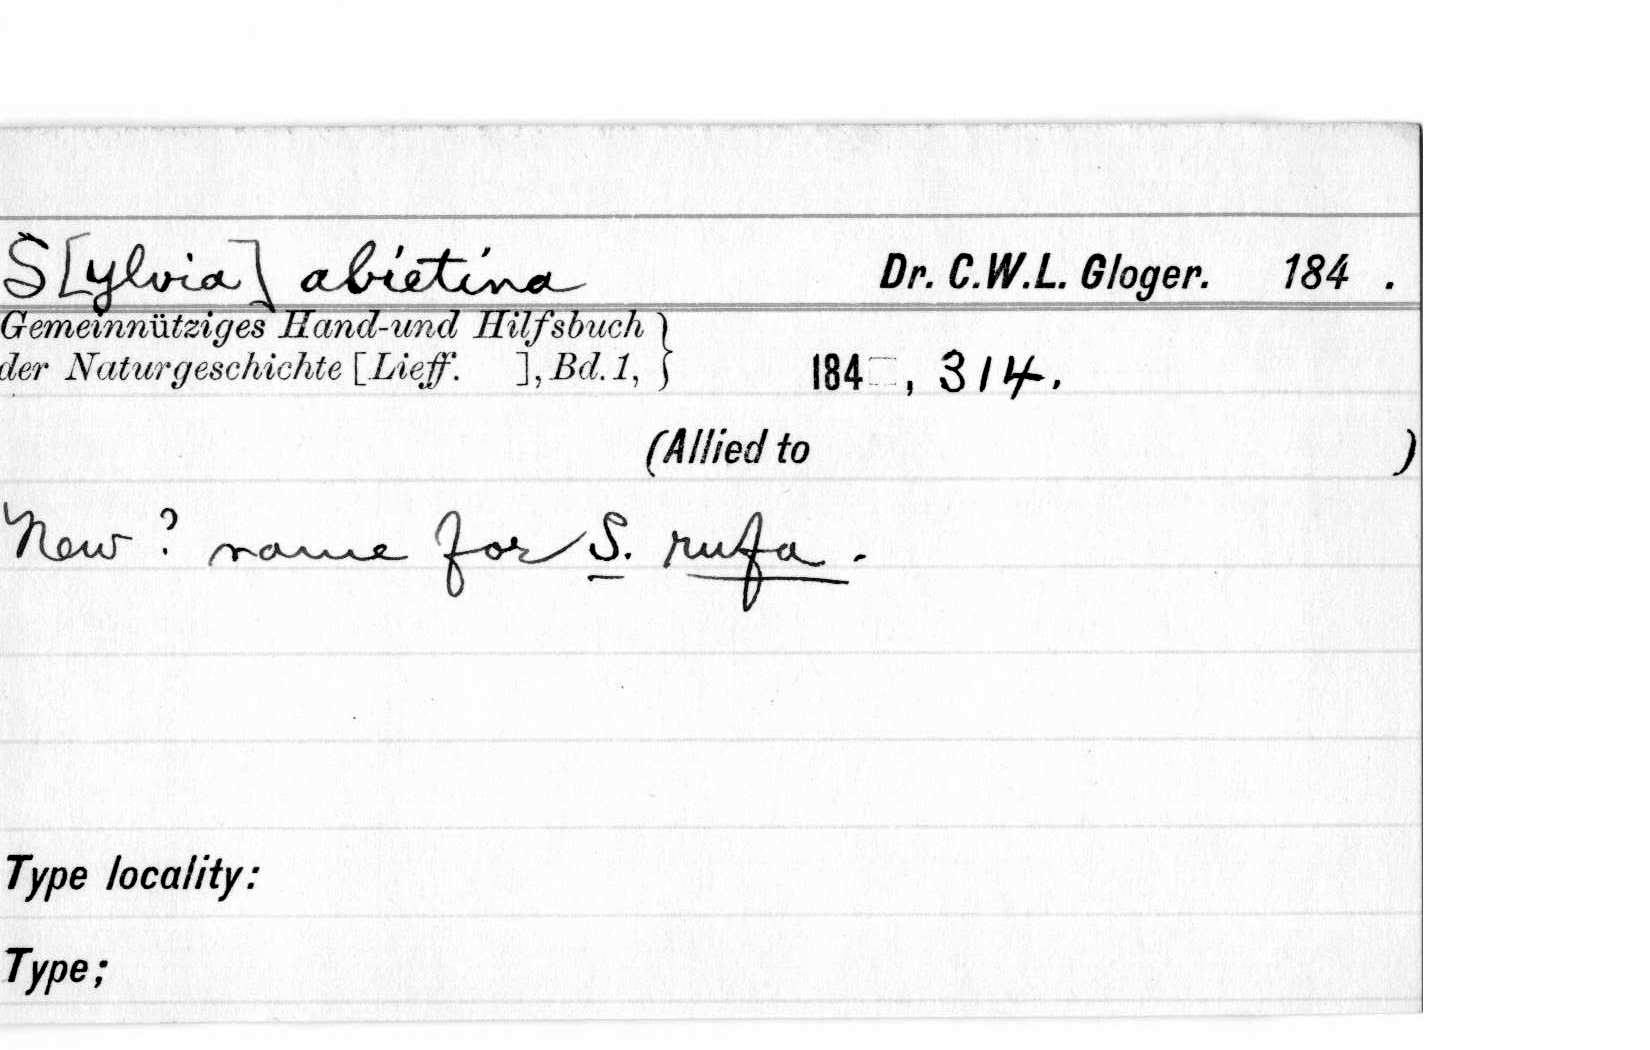 S[ylvia] abietina Dr. C.W.L. Gloger. 184 .
Gemeinnütziges Hand-und Hilfsbuch }
der Naturgeschichte [Lieff. ], Bd. 1, } 184 , 314.
(Allied to )
New ? name for S. rufa .
Type locality:
Type;